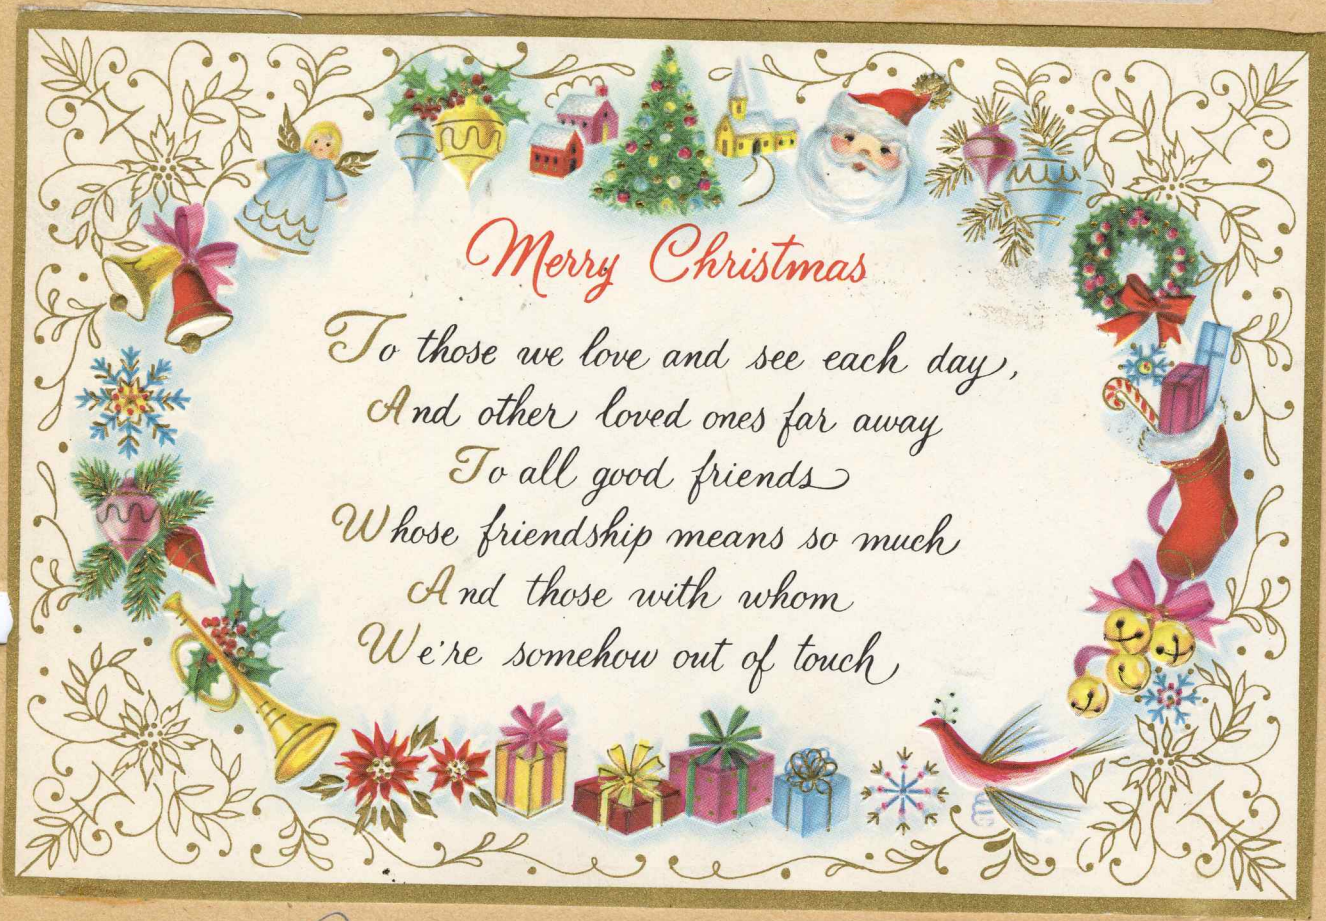 Merry Christmas
To those we love and see each day,
And other loved ones far away
To all good friends
Whose friendship means so much
And those with whom
We're somehow out of touch